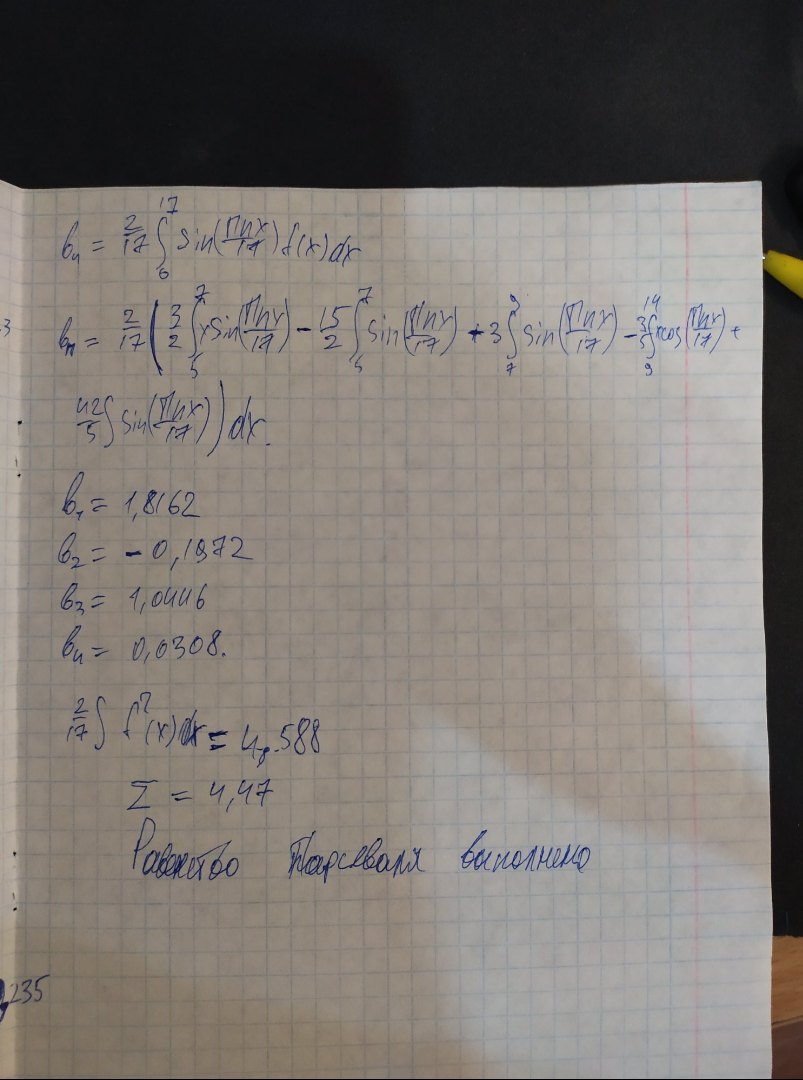 bₙ = 2/17 ∫₆¹⁷ sin(Πnx/17) f(x) dx
bₙ = 2/17 (3/2 ∫₅⁷ x sin(Πnx/17) - 15/2 ∫₅⁷ sin(Πnx/17) + 3 ∫₇⁹ sin(Πnx/17) - 3/5 ∫₉¹⁴ x cos(Πnx/17) +
42/5 ∫ sin(Πnx/17)) dx.
b₁ = 1,8162
b₂ = - 0,1972
b₃ = 1,0446
b₄ = 0,0308.
2/17 ∫ f²(x) dx = 4,588
Σ = 4,47
Равенство Парсеваля выполнено
3
235